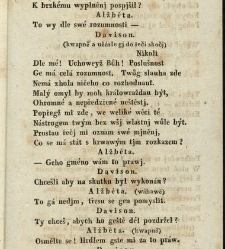 K brzkému wyplněnj pospjšil?
Alžběta.
To wy dle swé rozumnosti —
Davison.
(kwapně a užásle gj do řeči skočj)
Nikoli
Dle mé! Uchoweyž Bůh! Poslušnost
Ge má celá rozumnost, Twůg slauha zde
Nemá zhola ničeho co rozhodnout.
Malý omyl by moh králowraždau být,
Ohromné a nepředzírné neštěstj,
Popřegž mi zde, we weliké wěci té
Nástrogem twým bez wšj wlastnj wůle být.
Prostau řečj mi oznam swé mjněnj,
Co se má stát s krwawým tjm rozkazem?
Alžběta.
— Geho gméno wám to prawj.
Davison.
Chceš aby na skutku byl wykonán?
Alžběta (wáhawě)
To gá nedjm, třesu se gen pomyslit.
Davison.
Ty chceš, abych ho geště dél pozdržel?
Alžběta. (kwapně)
Osmělte se! Hrdlem gste má za to práw.